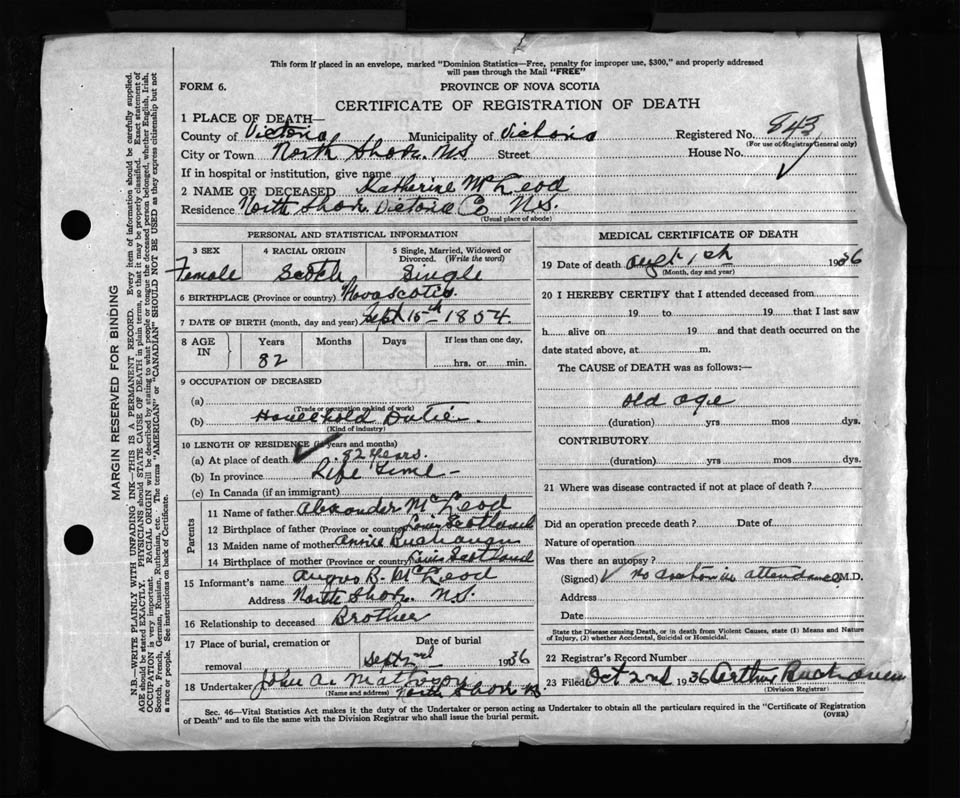 This form if placed in an envelope, marked "Dominion Statistics—Free, penalty for improper use, $300," and properly addressed
will pass through the Mail "FREE"
FORM 6.
PROVINCE OF NOVA SCOTIA
CERTIFICATE OF REGISTRATION OF DEATH
1 PLACE OF DEATH—
County of Victoria Municipality of Victoria Registered No. 843
(For use of Registrar General only)
City or Town North Shore. N.S. Street House No.
If in hospital or institution, give name
2 NAME OF DECEASED Katherine McLeod
Residence North Shore Victoria Co N.S.
(Usual place of abode)
PERSONAL AND STATISTICAL INFORMATION
3 SEX 4 RACIAL ORIGIN 5 Single, Married, Widowed or Divorced. (Write the word)
Female Scotch Single
6 BIRTHPLACE (Province or country) Nova Scotia.
7 DATE OF BIRTH (month, day and year) Sept 15th 1854.
8 AGE IN Years Months Days If less than one day,
82 hrs. or min.
9 OCCUPATION OF DECEASED
(a)
(Trade or occupation or kind of work)
(b) Household Dutie
(Kind of industry)
10 LENGTH OF RESIDENCE (in years and months)
(a) At place of death 82 years.
(b) In province Life time
(c) In Canada (if an immigrant)
Parents
11 Name of father Alexander McLeod
12 Birthplace of father (Province or country) Scotland
13 Maiden name of mother Annie Buchanan
14 Birthplace of mother (Province or country) Scotland
15 Informant's name Angus B. McLeod
Address North Shore. N.S.
16 Relationship to deceased Brother
17 Place of burial, cremation or removal
Date of burial
Sept 2nd 1936
18 Undertaker John A.
(Name and address) North Shore N.S.
MEDICAL CERTIFICATE OF DEATH
19 Date of death 1936
(Month, day and year)
20 I HEREBY CERTIFY that I attended deceased from
19 to 19 that I last saw
h alive on 19 and that death occurred on the
date stated above, at m.
The CAUSE of DEATH was as follows:—
old age
(duration) yrs mos dys.
CONTRIBUTORY
(duration) yrs mos dys.
21 Where was disease contracted if not at place of death?
Did an operation precede death? Date of
Nature of operation
Was there an autopsy?
(Signed) no doctor in attendance M.D.
Address
Date
State the Disease causing Death, or in death from Violent Causes, state (1) Means and Nature
of Injury, (2) whether Accidental, Suicidal or Homicidal.
22 Registrar's Record Number
23 Filed Oct 2nd 1936 Arthur Buchanan
(Division Registrar)
Sec. 46—Vital Statistics Act makes it the duty of the Undertaker or person acting as Undertaker to obtain all the particulars required in the "Certificate of Registration
of Death" and to file the same with the Division Registrar who shall issue the burial permit.
(OVER)
MARGIN RESERVED FOR BINDING
N.B.—WRITE PLAINLY WITH UNFADING INK—THIS IS A PERMANENT RECORD. Every item of information should be carefully supplied.
AGE should be stated EXACTLY. PHYSICIANS should state CAUSE OF DEATH in plain terms, so that it may be properly classified. Exact statement of
OCCUPATION is very important. RACIAL ORIGIN will be described by stating to what people or tongue the deceased person belonged, whether English, Irish,
Scotch, French, German, Russian, Ruthenian, etc. The terms "AMERICAN" or "CANADIAN" SHOULD NOT BE USED as they express citizenship but not
a race or people. See instructions on back of Certificate.